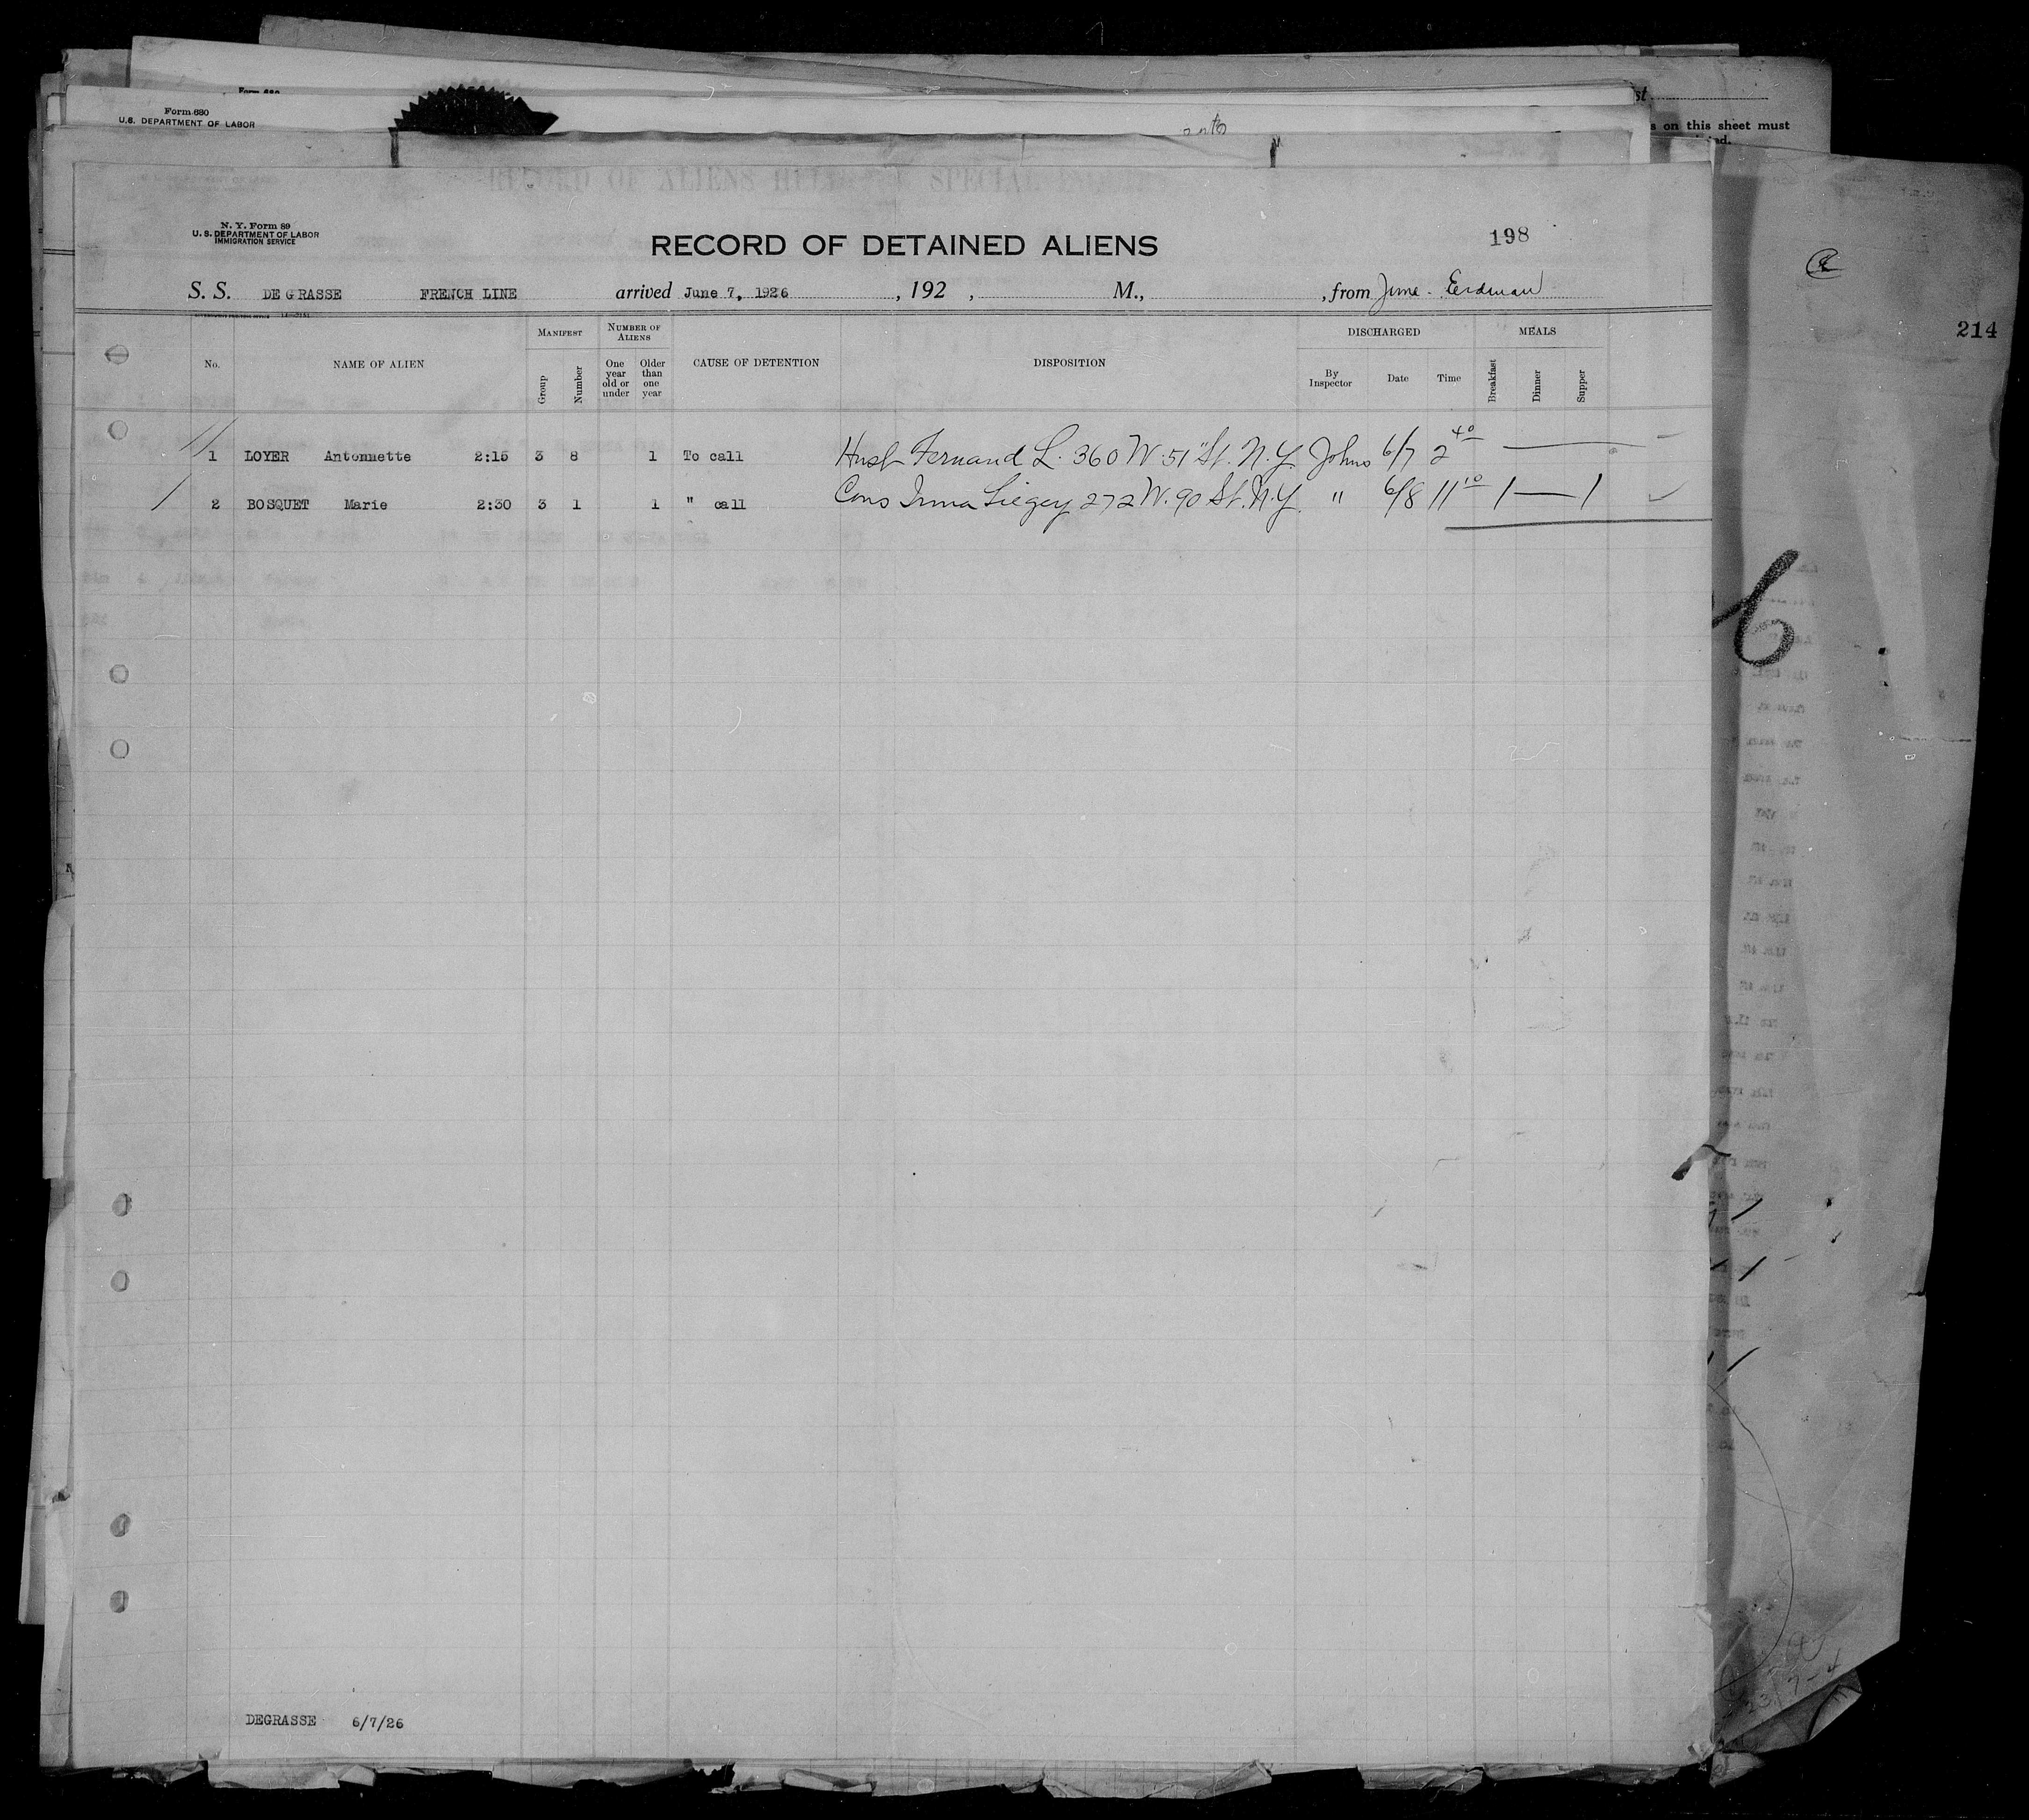 Form 680
U.S. DEPARTMENT OF LABOR
st
s on this sheet must
ed.
RECORD OF ALIENS HELD SPECIAL
N. Y. Form 89
U. S. DEPARTMENT OF LABOR
IMMIGRATION SERVICE
RECORD OF DETAINED ALIENS
198
S. S. DE GRASSE FRENCH LINE arrived June 7, 1926 , 192 , M., , from June - Erdman
214
No. NAME OF ALIEN MANIFEST Group Number NUMBER OF ALIENS One year old or under Older than one year CAUSE OF DETENTION DISPOSITION DISCHARGED By Inspector Date Time MEALS Breakfast Dinner Supper
1 LOYER Antonnette 2:15 3 8 1 To call Husb Fernand L. 360 W 51" St. N.Y. Johns 6/7 2 40 —
2 BOSQUET Marie 2:30 3 1 1 " call Cons Irma Liegey 272 W. 90 St. N.Y. " 6/8 11 10 1 — 1 ✓
6
DEGRASSE 6/7/26